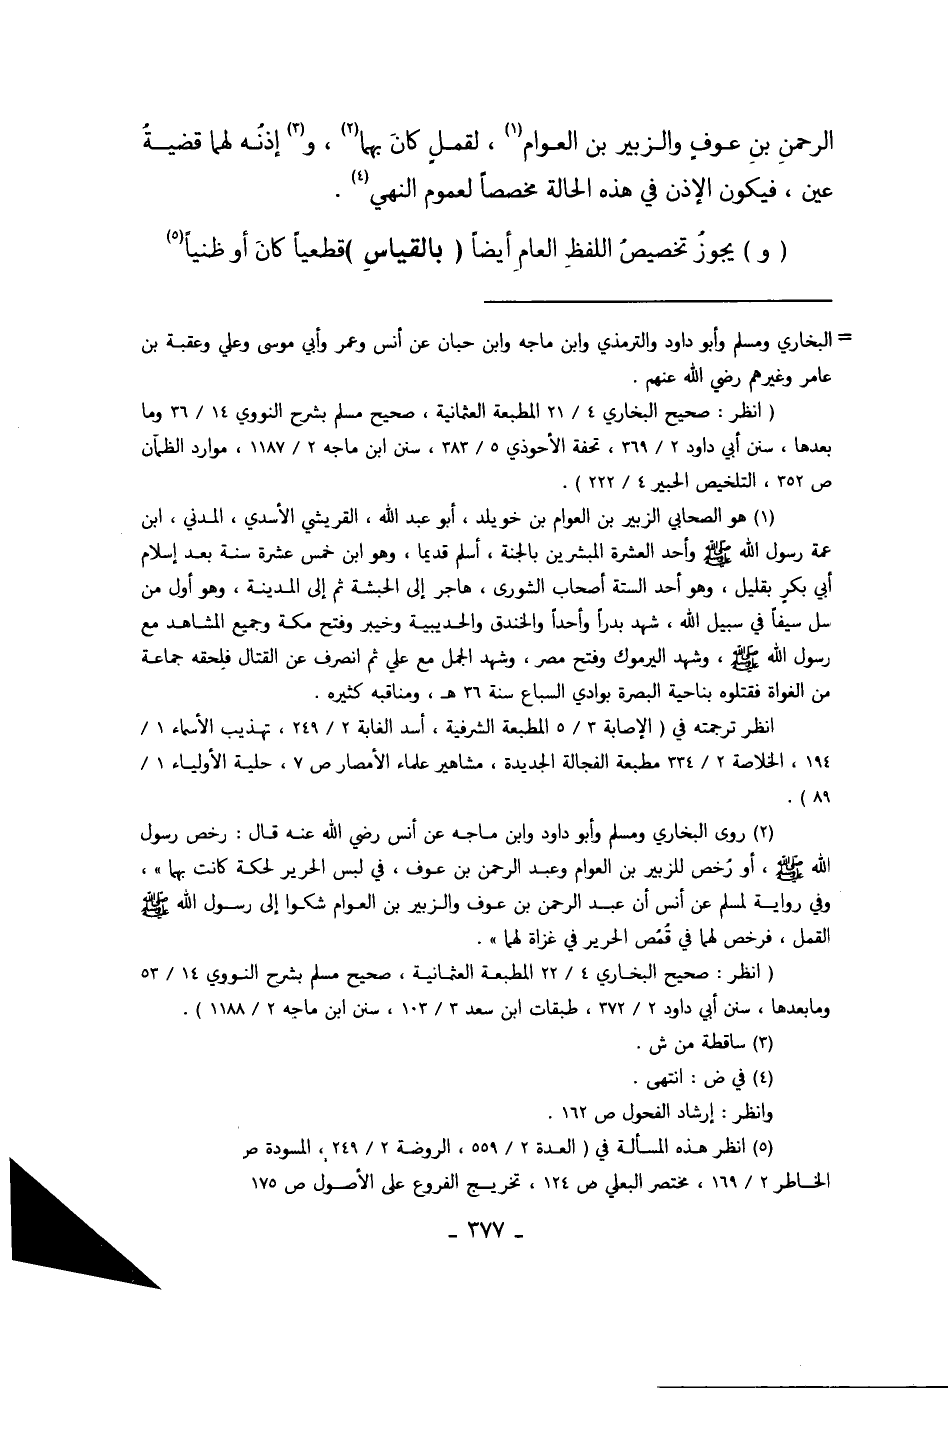 الرحمنِ بنِ عـوفٍ والـزبير بن العـوام(١) ، لقمـلٍ كانَ بهما(٢) ، و(٣) إذنُـه لهما قضيـةُ
عين ، فيكون الإذن في هذه الحالة مخصصاً لعموم النهي(٤) .
( و ) يجوزُ تخصيصُ اللفظِ العامِ أيضاً ( بالقياسِ ) قطعياً كانَ أو ظنياً(٥)
= البخاري ومسلم وأبو داود والترمذي وابن ماجه وابن حبان عن أنس وعمر وأبي موسى وعلي وعقبـة بن
عامر وغيرهم رضي الله عنهم .
( انظر : صحيح البخاري ٤ / ٢١ المطبعة العثمانية ، صحيح مسلم بشرح النووي ١٤ / ٣٦ وما
بعدها ، سنن أبي داود ٢ / ٣٦٩ ، تحفة الأحوذي ٥ / ٣٨٣ ، سنن ابن ماجه ٢ / ١١٨٧ ، موارد الظمآن
ص ٣٥٢ ، التلخيص الحبير ٤ / ٢٢٢ ) .
(١) هو الصحابي الزبير بن العوام بن خويلد ، أبو عبد الله ، القريشي الأسدي ، المـدني ، ابن
عمة رسول الله ﷺ وأحد العشرة المبشرين بالجنة ، أسلم قديما ، وهو ابن خمس عشرة سنة بعـد إسلام
أبي بكرٍ بقليل ، وهو أحد الستة أصحاب الشورى ، هاجر إلى الحبشـة ثم إلى المـدينـة ، وهو أول من
سل سيفاً في سبيل الله ، شهد بدراً وأحداً والخندق والحـديبيـة وخيبر وفتح مكـة وجميع المشاهـد مع
رسول الله ﷺ ، وشهد اليرموك وفتح مصر ، وشهد الجمل مع علي ثم انصرف عن القتال فلحقه جماعـة
من الغواة فقتلوه بناحية البصرة بوادي السباع سنة ٣٦ هـ ، ومناقبه كثيره .
انظر ترجمته في ( الإصابة ٣ / ٥ المطبعة الشرفية ، أسد الغابة ٢ / ٢٤٩ ، تهـذيب الأسماء ١ /
١٩٤ ، الخلاصة ٢ / ٣٣٤ مطبعة الفجالة الجديدة ، مشاهير علماء الأمصار ص ٧ ، حليـة الأوليـاء ١ /
٨٩ ) .
(٢) روى البخاري ومسلم وأبو داود وابن مـاجـه عن أنس رضي الله عنـه قـال : رخص رسول
الله ﷺ ، أو رُخص للزبير بن العوام وعبـد الرحمن بن عـوف ، في لبس الحرير لحكـة كانت بهما » ،
وفي روايـة لمسلم عن أنس أن عبـد الرحمن بن عوف والـزبير بن العوام شكـوا إلى رسـول الله ﷺ
القمل ، فرخص لهما في قُمُص الحرير في غزاة لهما » .
( انظر : صحيح البخـاري ٤ / ٢٢ المطبعـة العثمـانيـة ، صحيح مسلم بشرح النـووي ١٤ / ٥٣
ومابعدها ، سنن أبي داود ٢ / ٣٧٢ ، طبقات ابن سعد ٣ / ١٠٣ ، سنن ابن ماجه ٢ / ١١٨٨ ) .
(٣) ساقطة من ش .
(٤) في ض : انتهى .
وانظر : إرشاد الفحول ص ١٦٢ .
(٥) انظر هـذه المسألـة في ( العـدة ٢ / ٥٥٩ ، الروضـة ٢ / ٢٤٩ ، المسودة ص
الخـاطر ٢ / ١٦٩ ، مختصر البعلي ص ١٢٤ ، تخريـج الفروع على الأصـول ص ١٧٥
- ٣٧٧ -